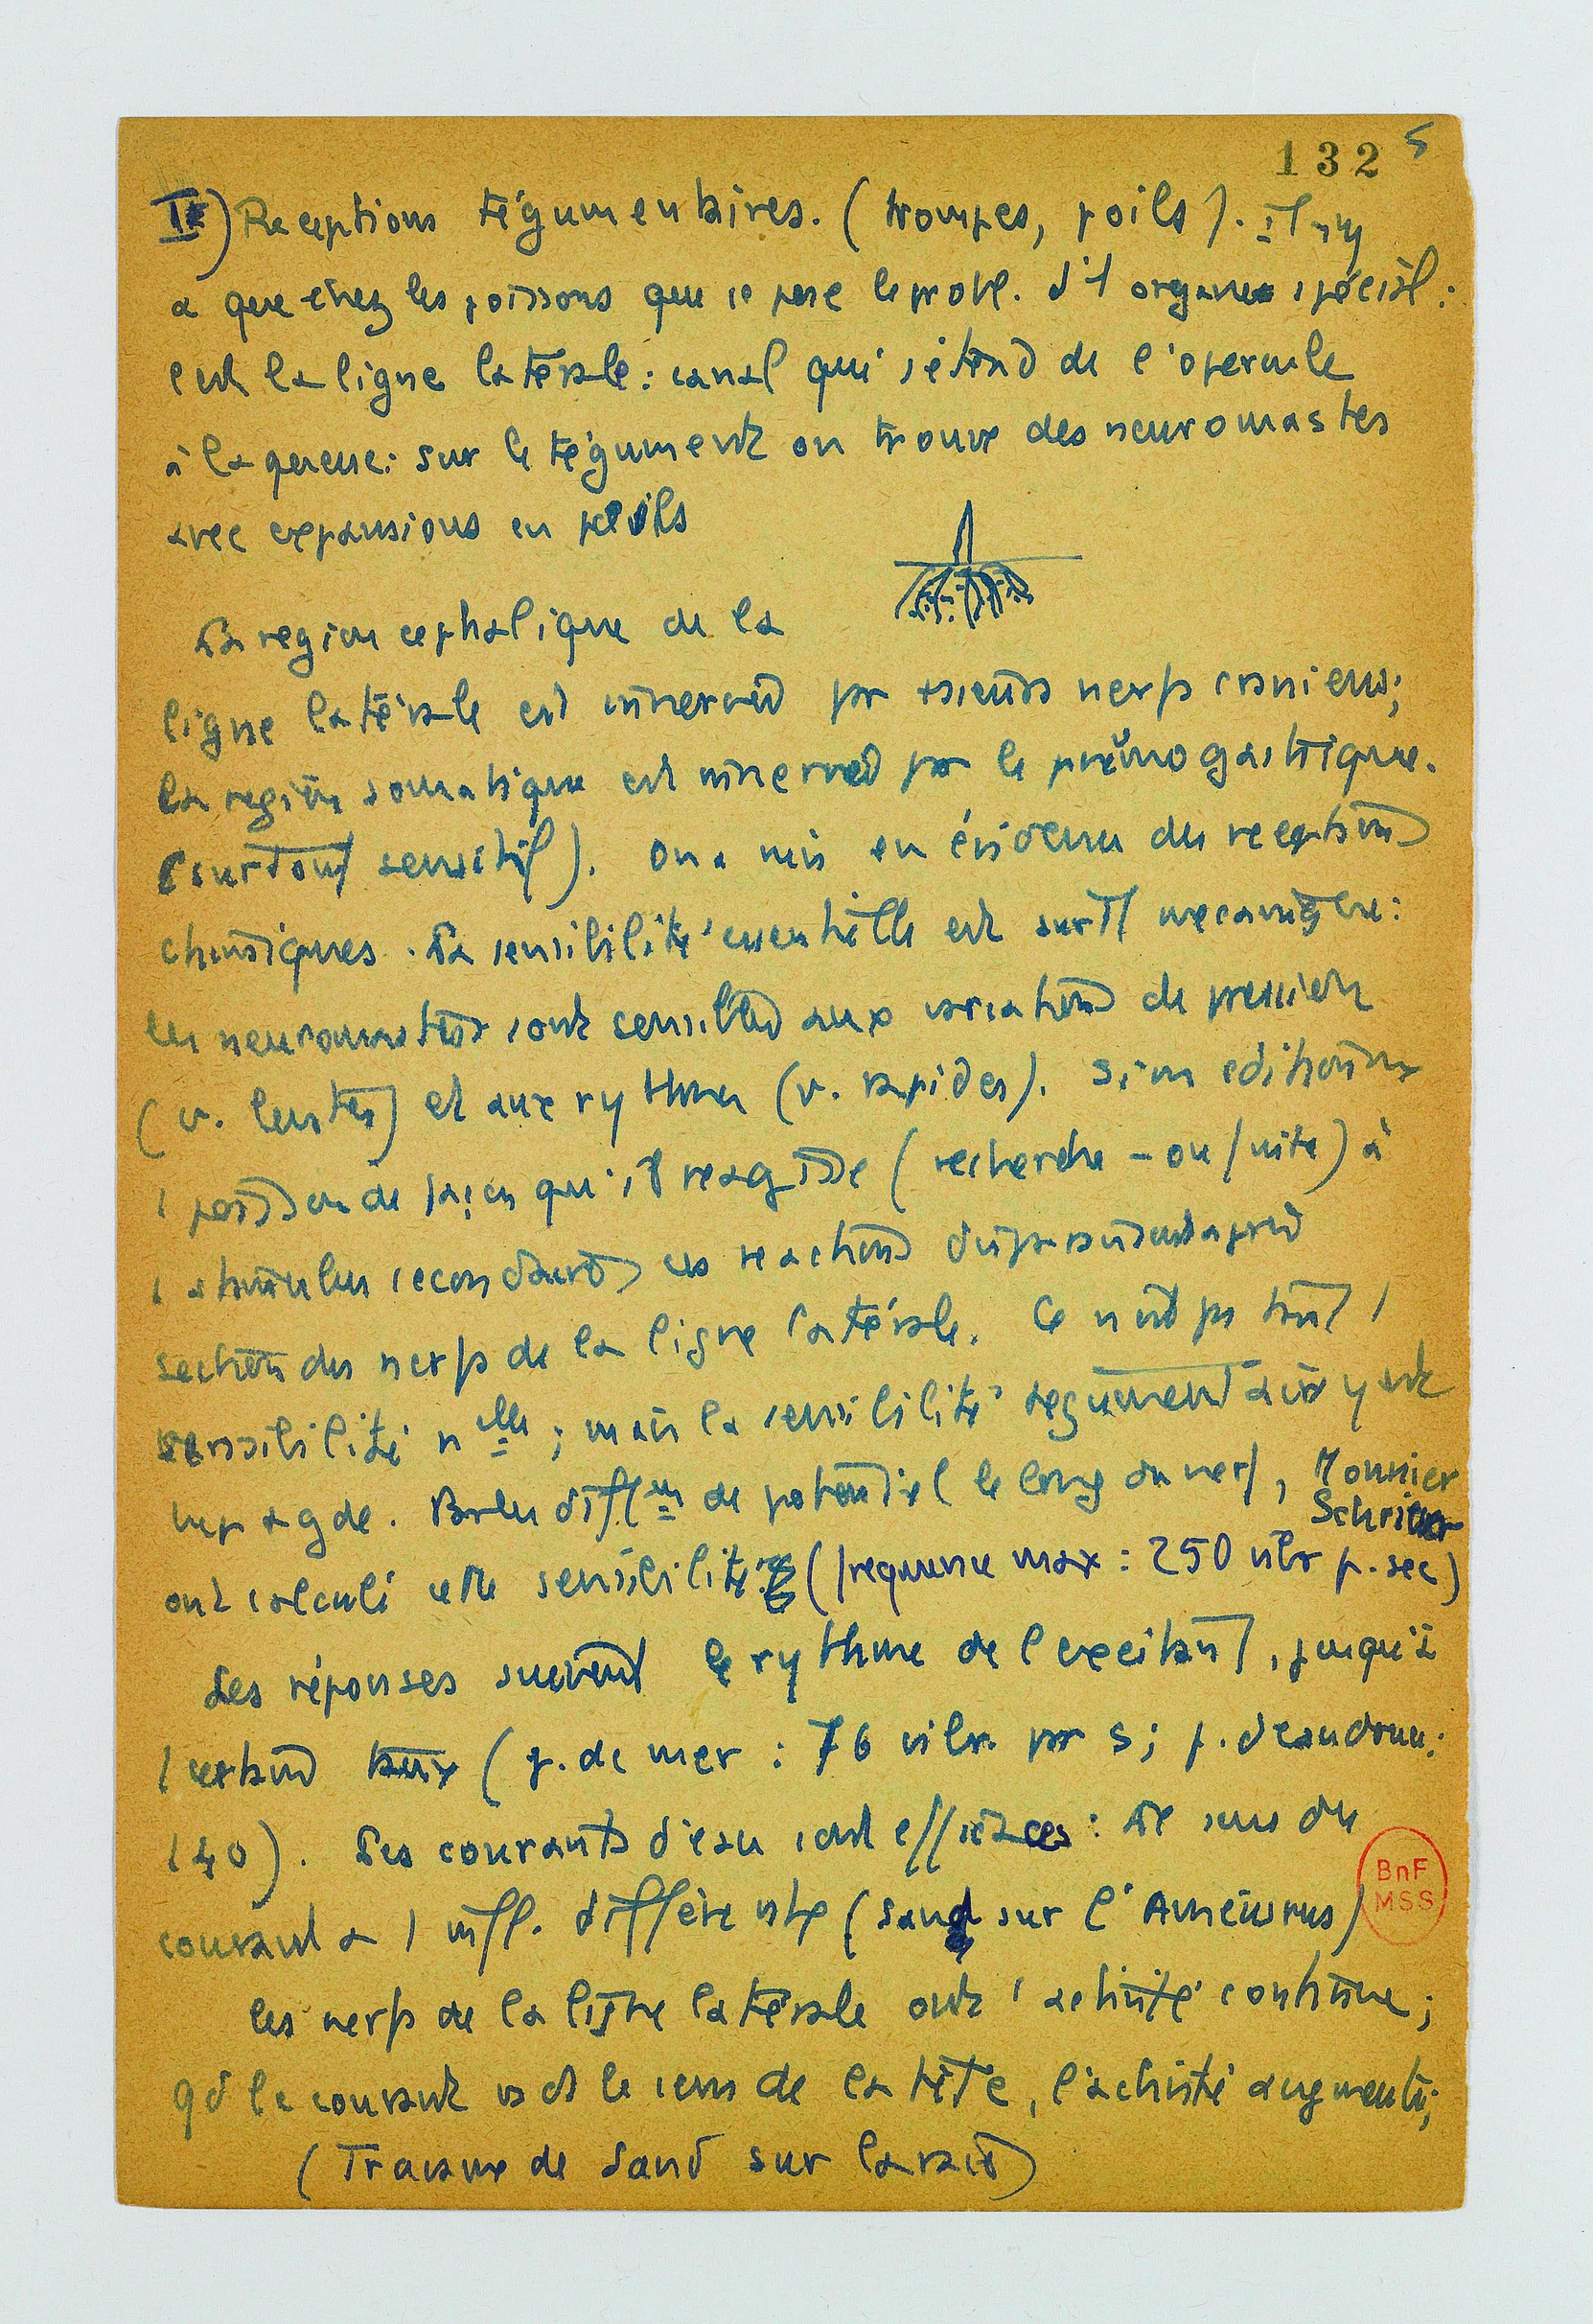 132 5
II) Receptions tégumentaires. (trompes, poils). Il n'y
a que chez les poissons que se pose le probl. d'1 organe spécial :
c'est la ligne latérale : canal qui s'étend de l'opercule
à la queue : sur le tégument on trouve des neuromastes
avec expansions en poils
La region cephalique de la
ligne latérale est innervée par nerfs craniens;
la region somatique est innervée par le pneumogastrique.
(surtout sensitif). On a mis en évidence des receptions
chimiques. La sensibilité essentielle est surtt mecanique :
les neuromastes sont sensibles aux variations de pression
(v. lentes) et aux rythmes (v. rapides). Si on conditionne
1 poisson de façon qu'il reagisse (recherche – ou fuite) à
1 stimulus secondaire, ces reactions disparaissent après
section des nerfs de la ligne latérale. Ce n'est pas tant 1
sensibilité nlle ; mais la sensibilité tegumentaire y est
plus gde. Par les diff. de potentiel le long du nerf, Monnier
Schriever
ont calculé cette sensibilité (frequence max : 250 vibr p. sec)
Les réponses suivent le rythme de l'excitant, jusqu'à
1 certain taux (p. de mer : 76 vibr. par s ; p. d'eau douce :
140). Les courants d'eau sont efficaces : le sens du
courant a 1 infl. différente (Sand sur l'Ameiurus)
BnF
MSS
les nerfs de la ligne latérale ont 1 activité continue ;
qd le courant va ds le sens de la tête, l'activité augmente ;
(Travaux de Sand sur la raie)